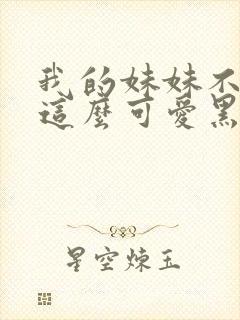 我的妹妹不
這麼可愛黑
星空煉玉